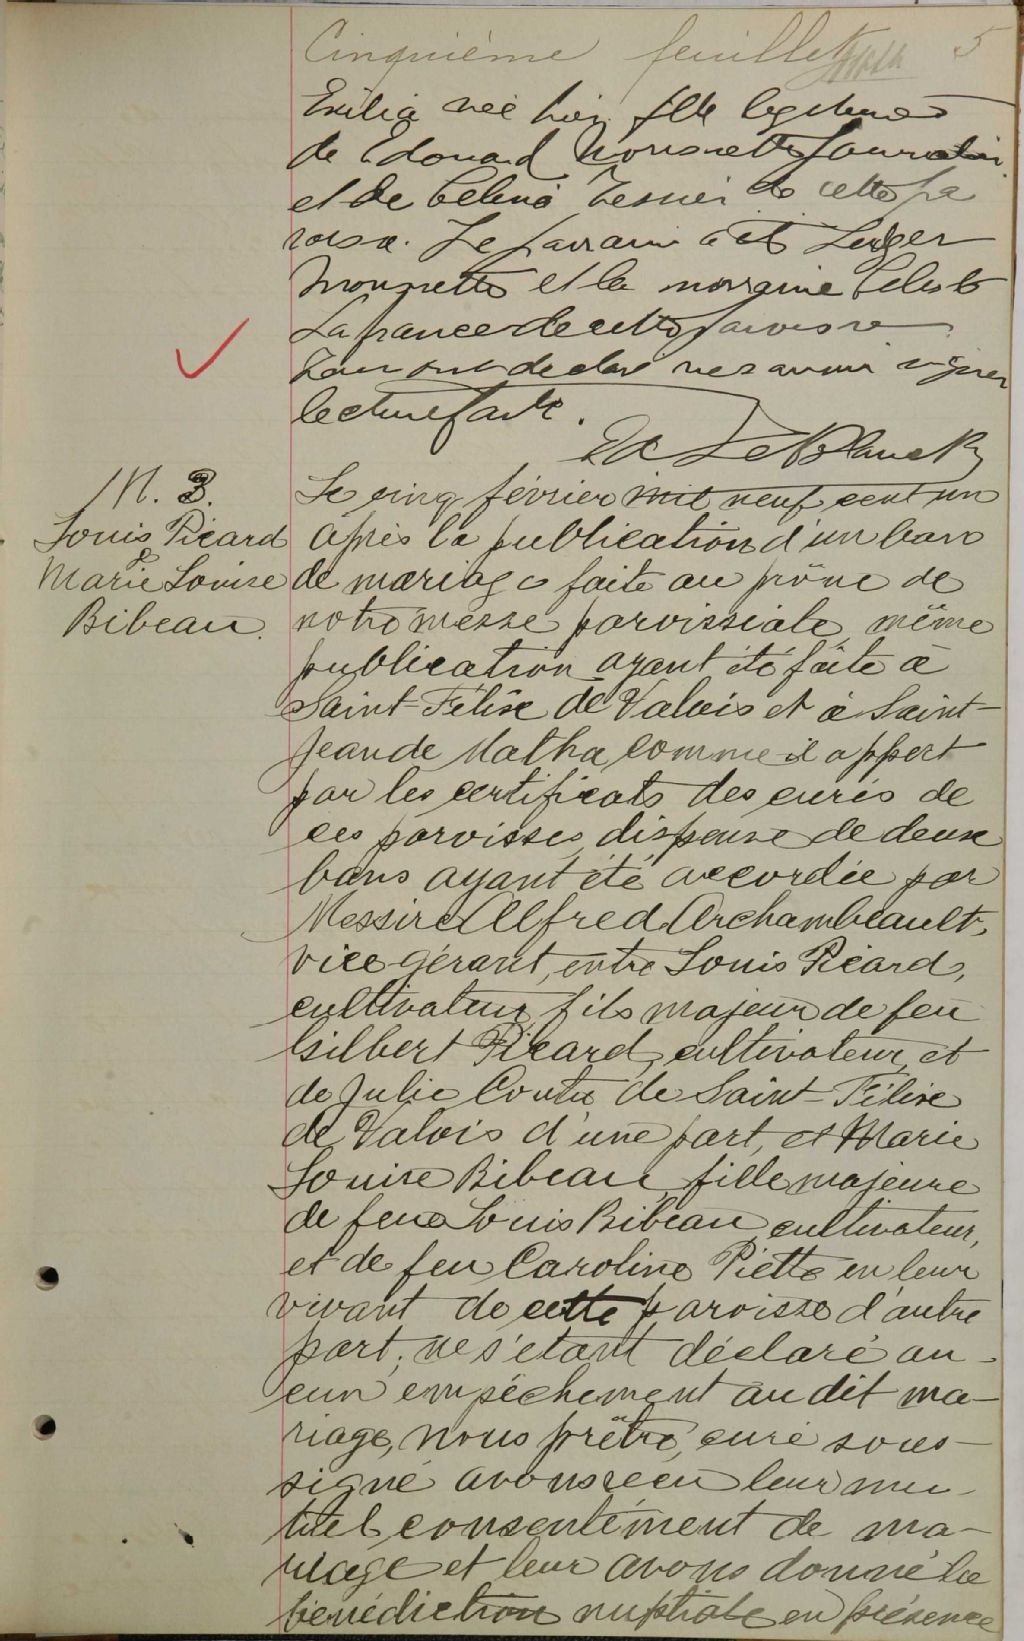 Cinquième feuillet 5
Exilia née hier fille legitime
de Edouard journalier
et de Celina Tessier de cette pa
roisse. Le parrain a été Ludger
et la marraine Celeste
Lafrance de cette paroisse
declaré ne savoir signer
lecture faite.
M. 3.
Louis Picard
&
Marie Louise
Bibeau.
Le cinq février mil neuf cent un
après la publication d'un banc
de mariage faite au prône de
notre messe paroissiale, même
publication ayant été faite à
Saint-Félix de Valois et à Saint-
Jean de Matha comme il appert
par les certificats des curés de
ces paroisses, dispense de deux
bans ayant été accordée par
Messire Alfred Archambeault,
vice-gérant, entre Louis Picard,
cultivateur, fils majeur de feu
Gilbert Picard, cultivateur, et
de Julie Coutu de Saint-Félix
de Valois d'une part, et Marie
Louise Bibeau, fille majeure
de feu Louis Bibeau, cultivateur,
et de feu Caroline Piette en leur
vivant de cette paroisse d'autre
part; ne s'étant déclaré au-
cun empéchement au dit ma-
riage, nous prêtre, curé sous-
signé avons reçu leur mu-
tuel consentement de ma-
riage et leur avons donné la
bénédiction nuptiale en présence